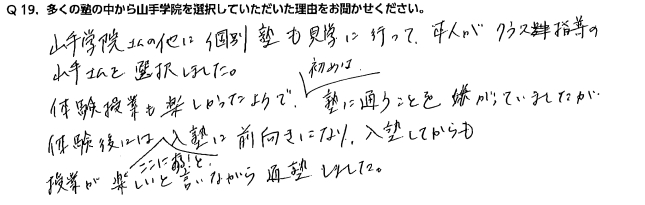 Q 19．多くの塾の中から山手学院を選択していただいた理由をお聞かせください。
山手学院さんの他に個別塾も見学に行って、本人がクラス指導の
山手さんを選択しました。
体験授業も楽しかったようで、初めは、塾に通うことを嫌がっていましたが
体験後には、ここに通う！と、入塾に前向きになり、入塾してからも
授業が楽しいと言いながら通塾しました。